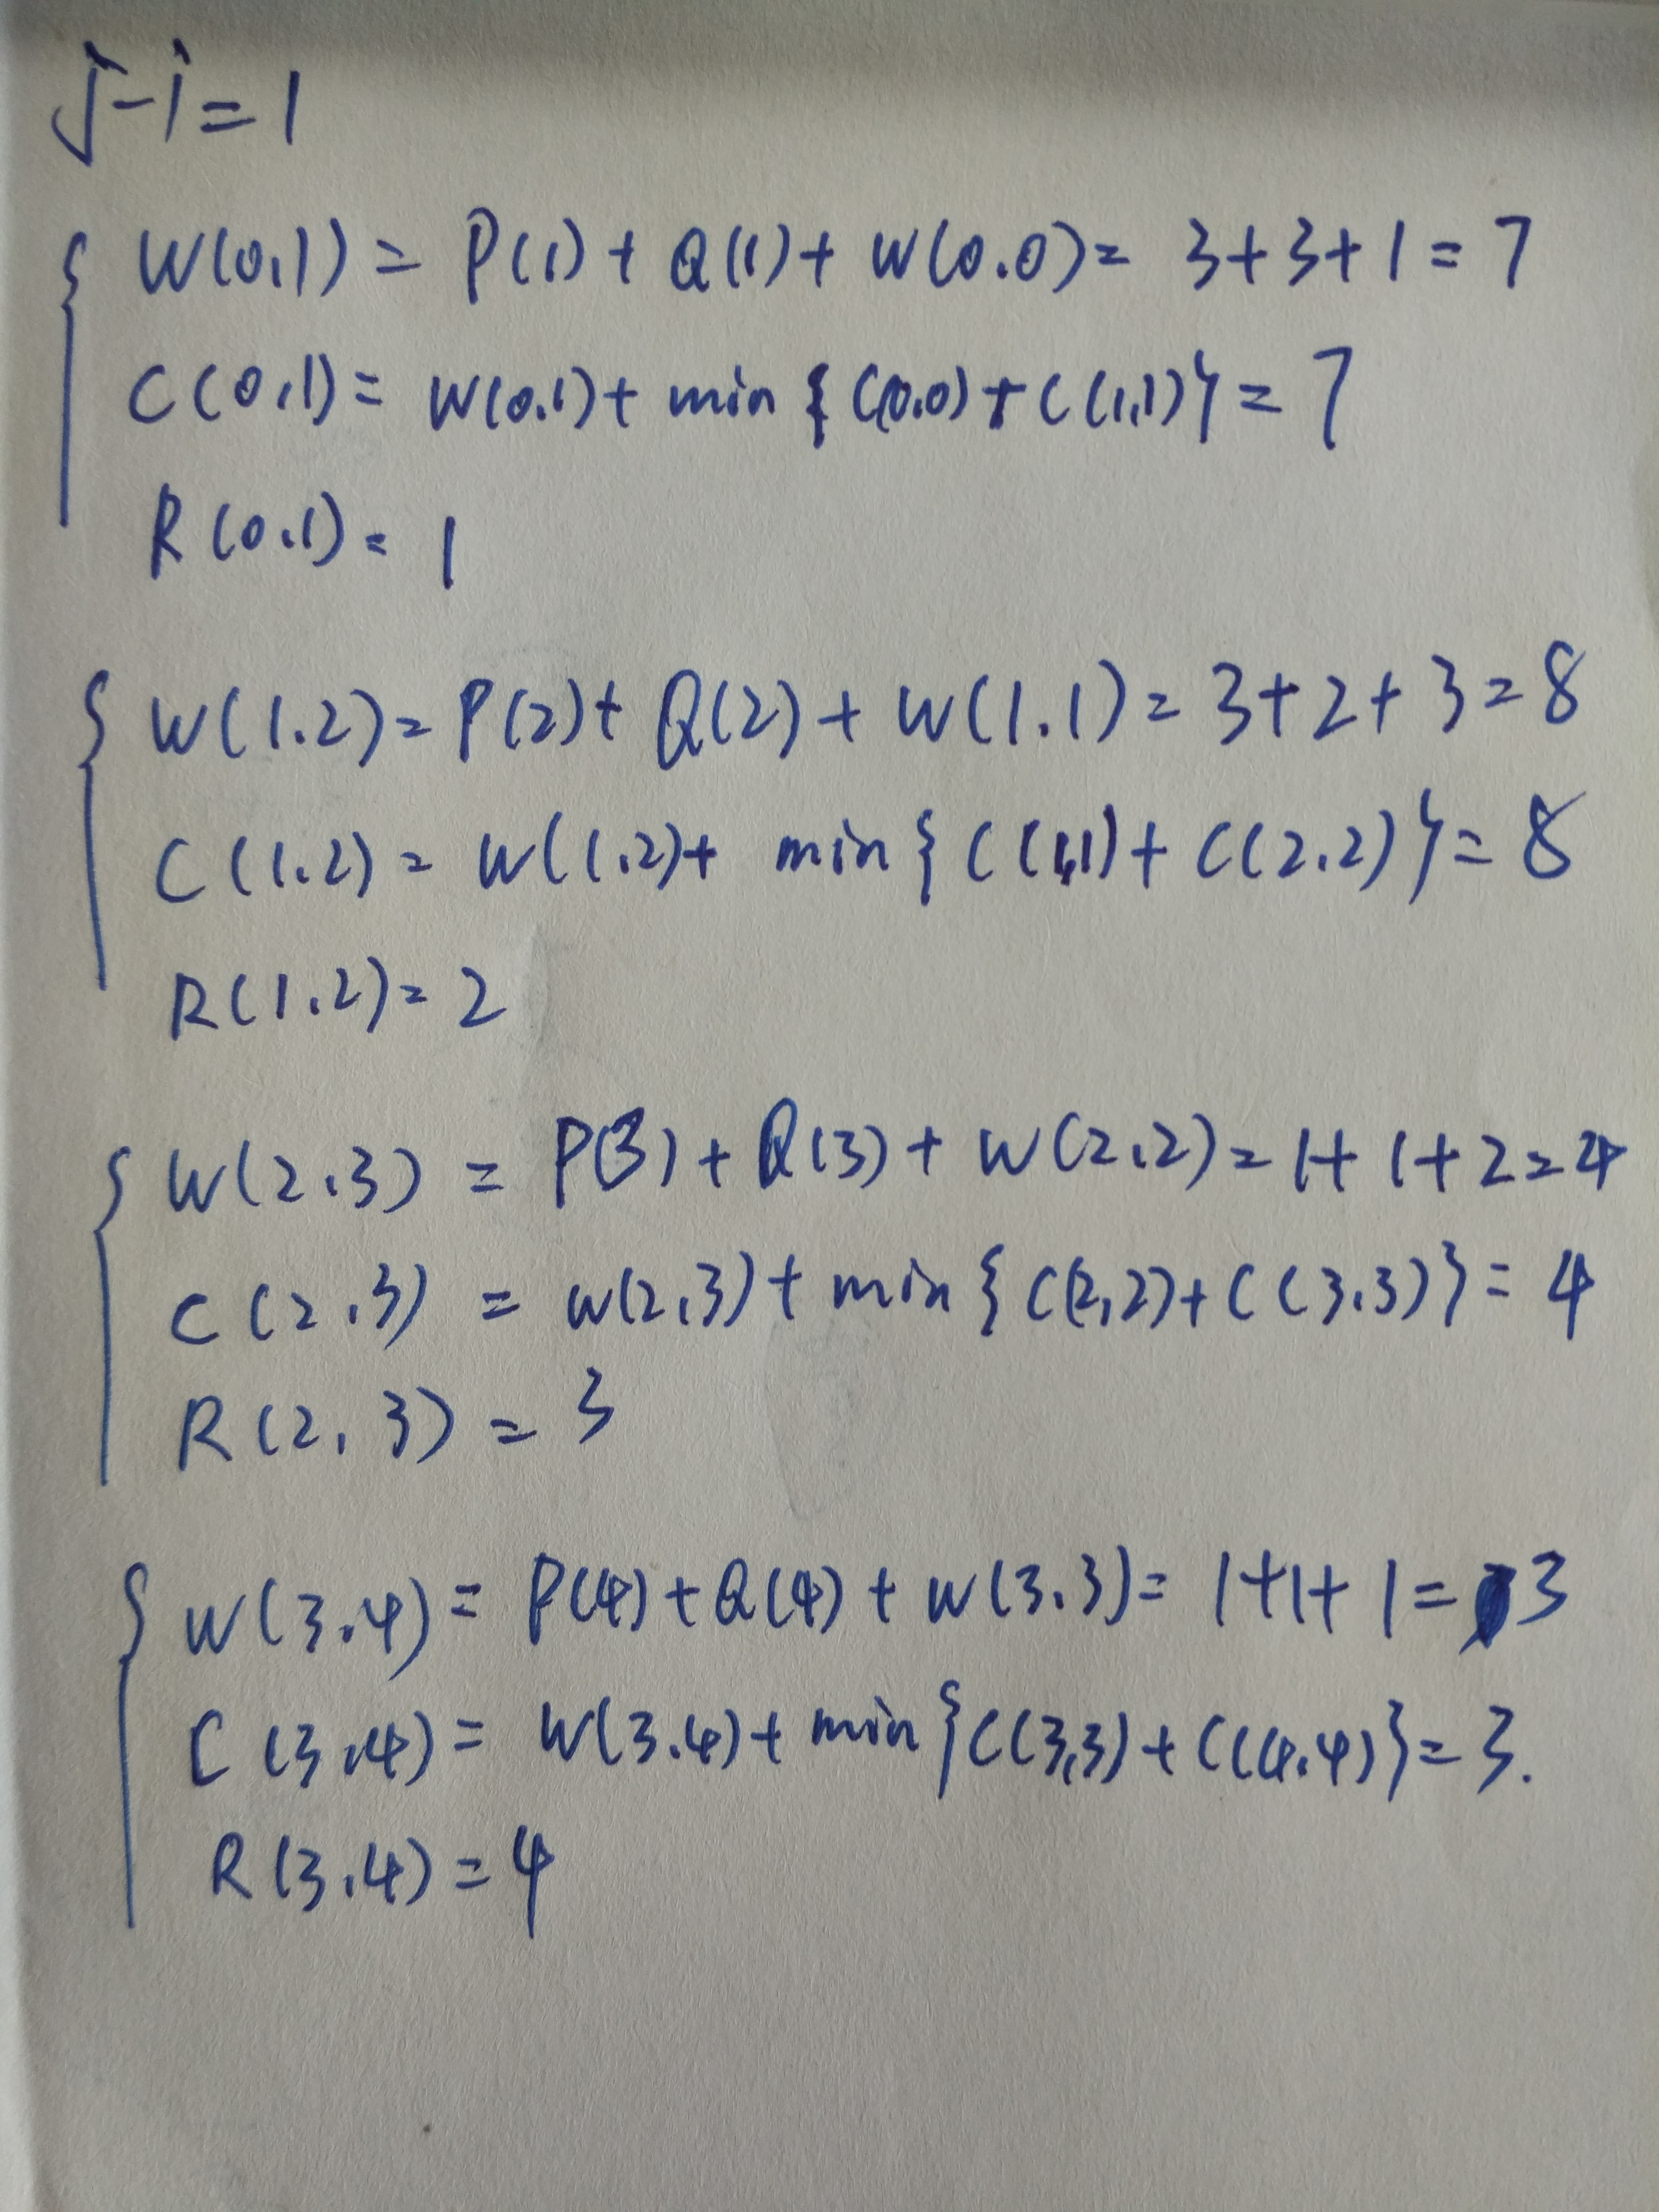 j-i=1
W(0,1) = P(1) + Q(1) + W(0.0) = 3+3+1=7
C(0,1) = W(0.1)+ min { C(0.0) + C(1,1)} = 7
R(0.1) = 1
W(1.2) = P(2)+ Q(2) + W(1.1) = 3+2+3=8
C(1.2) = W(1.2)+ min { C(1,1) + C(2.2)} = 8
R(1.2) = 2
W(2.3) = P(3) + Q(3) + W(2.2) = 1+1+2=4
C(2.3) = W(2,3)+ min { C(2,2)+C(3.3)} = 4
R(2, 3) = 3
W(3.4) = P(4) + Q(4) + W(3.3) = 1+1+1=3
C(3.4) = W(3.4)+ min { C(3,3) + C(4.4)} = 3.
R(3.4) = 4